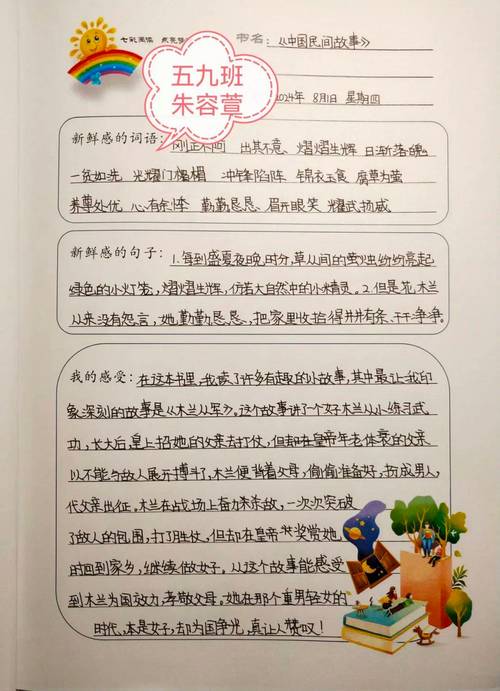 七彩阅读 点亮
书名：《中国民间故事》
五九班
朱容萱
2024年 8月1日 星期四
新鲜感的词语：刚正不阿 出其不意、熠熠生辉 日渐落魄
一贫如洗 光耀门楣 冲锋陷阵 锦衣玉食 腐草为萤
养尊处优 心有余悸 勤勤恳恳 眉开眼笑 耀武扬威
新鲜感的句子：1.每到盛夏夜晚时分，草丛间的萤烛纷纷亮起
绿色的小灯笼，熠熠生辉，仿若大自然中的小精灵。2.但是花木兰
从来没有怨言，她勤勤恳恳，把家里收拾得井井有条、干干净净。
我的感受：在这本书里，我读了许多有趣的小故事，其中最让我印
象深刻的故事是《木兰从军》。这个故事讲了个好木兰从小练习武
功，长大后，皇上招她的父亲去打仗，但却在皇帝年老体衰的父亲
以不能与敌人展开搏斗，木兰便背着父母，偷偷准备好，扮成男人，
代父亲出征。木兰在战场上奋力杀敌，一次次突破
了敌人的包围，打了胜仗，但却在皇帝奖赏她
时回到家乡，继续做女子。从这个故事能感受
到木兰为国效力，孝敬父母。她在那个重男轻女的
时代，本是女子，却为国争光，真让人赞叹！